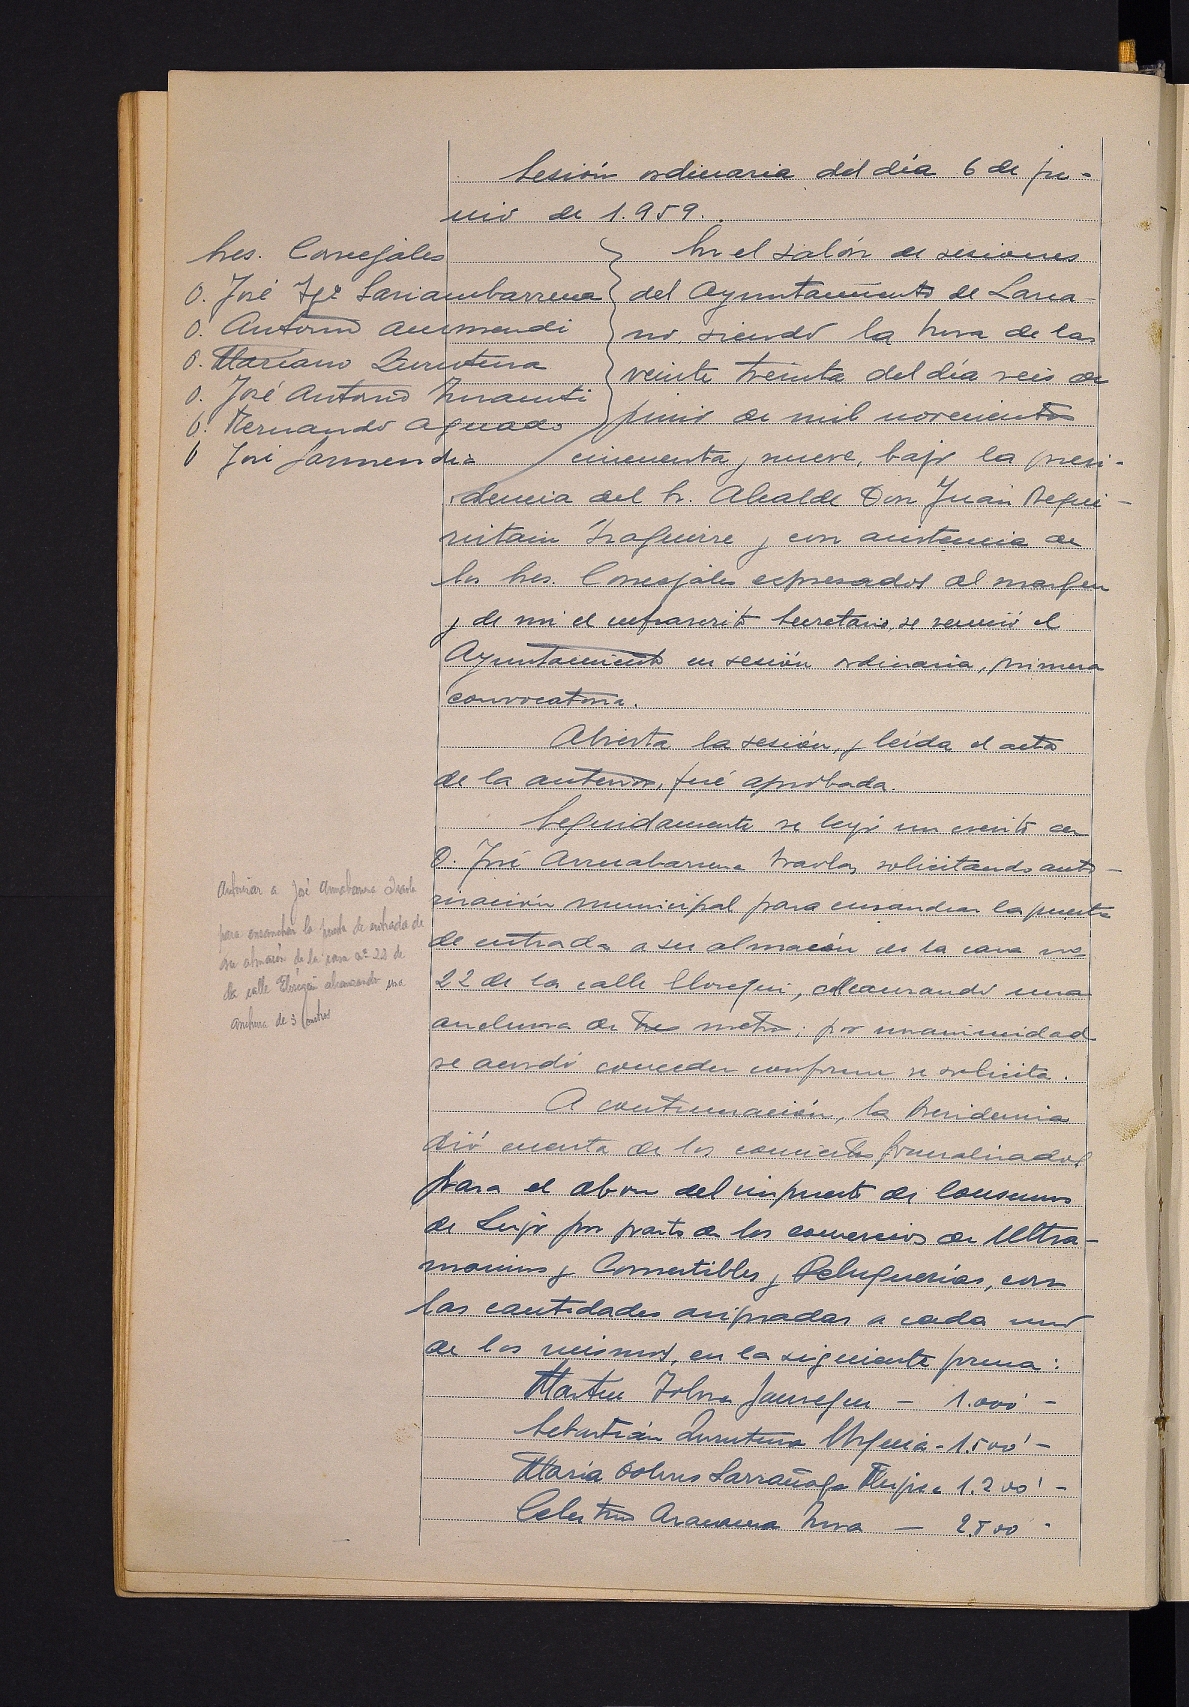 Sesión ordinaria del día 6 de ju-
nio de 1.959.
Sres. Concejales
D. José Igº Sariambarrena
D. Antonio Aurmendi
D. Mariano Zurutuza
D. José Antonio
D. Fernando Aguado
D José Garmendia
En el salón de sesiones
del Ayuntamiento de Lasa-
no siendo la hora de las
veinte treinta del día seis de
junio de mil novecientos
cincuenta y nueve, bajo la presi-
dencia del Sr. Alcalde Don Juan Begui-
ristain Izaguirre y con asistencia de
los Sres. Concejales expresados al margen
y de mi el infrascrito Secretario, se reunió el
Ayuntamiento en sesión ordinaria, primera
convocatoria.
Abierta la sesión, y leída el acta
de la anterior, fué aprobada.
Seguidamente se leyó un escrito de
D. José Arruabarrena solicitando auto-
rización municipal para ensanchar la puerta
de entrada a su almacén de la casa nº
22 de la calle Elosegui, alcanzando una
anchura de tres metros; por unanimidad
se acordó conceder conforme se solicita.
Autorizar a José Arruabarrena
para ensanchar la puerta de entrada de
su almacén de la casa nº 22 de
la calle Elósegui alcanzando una
anchura de 3 metros
A continuación, la Presidencia
dió cuenta de los conciertos formalizados
para el abono del impuesto de Consumos
de Lujo por parte de los comercios de Ultra-
marinos y Comestibles y Peluquerías, con
las cantidades asignadas a cada uno
de los mismos, en la siguiente forma:
Martin Jauregui - 1.000' -
Sebastián Zurutuza Urquia - 1.500' -
Maria Dolores Larrañaga 1.200' -
Celestino Aramama - 2.500 -